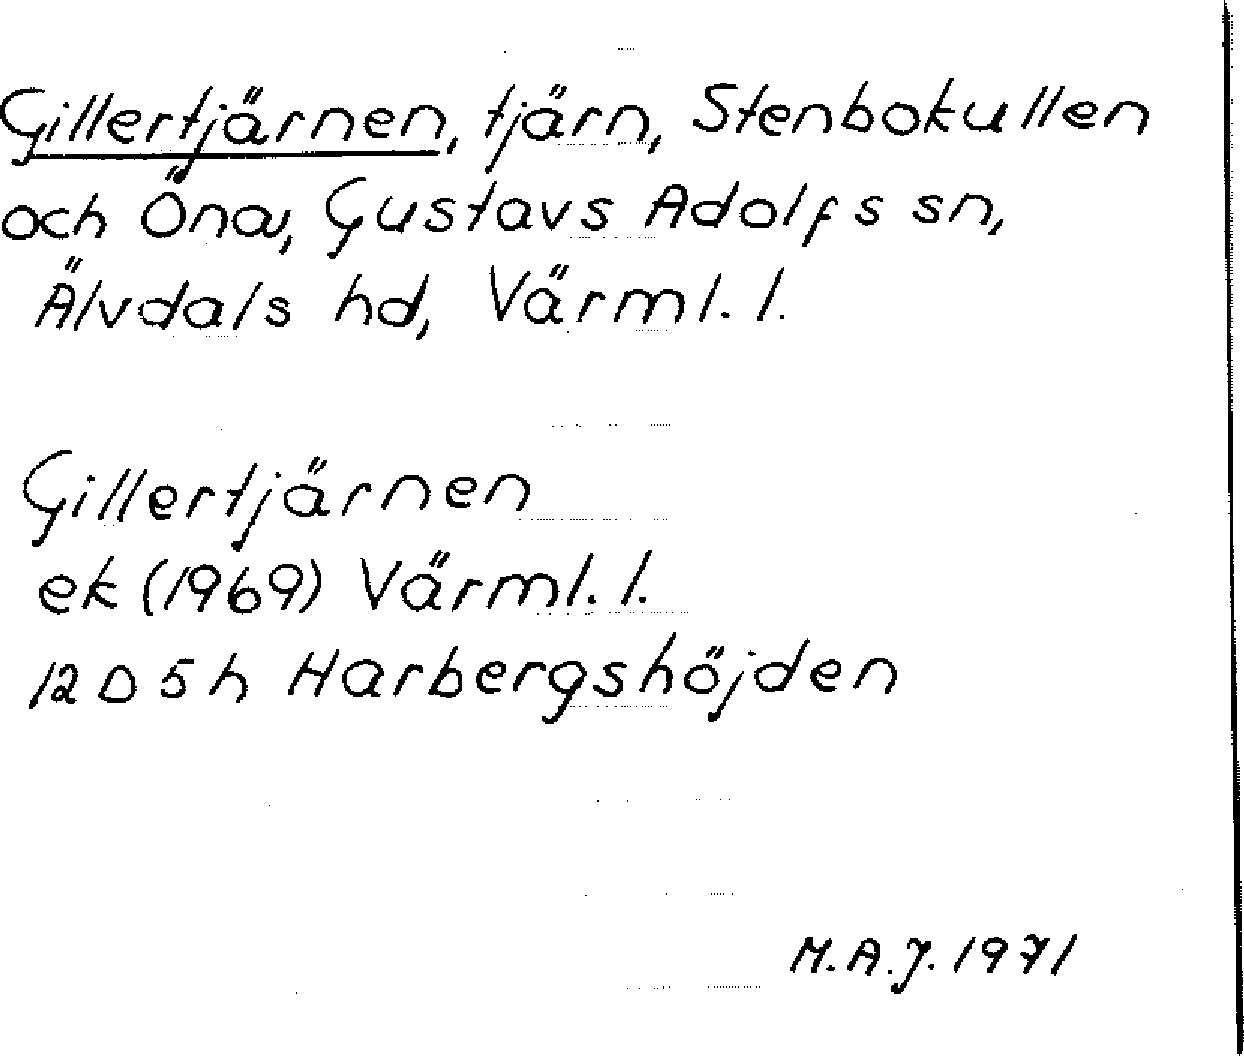 Gillertjärnen, tjärn, Stenbokullen
och Öna, Gustavs Adolfs sn,
Älvdals hd, Värml. l.
Gillertjärnen
ek (1969) Värml. l.
12 D 5 h Harbergshöjden
M.A.J. 1971